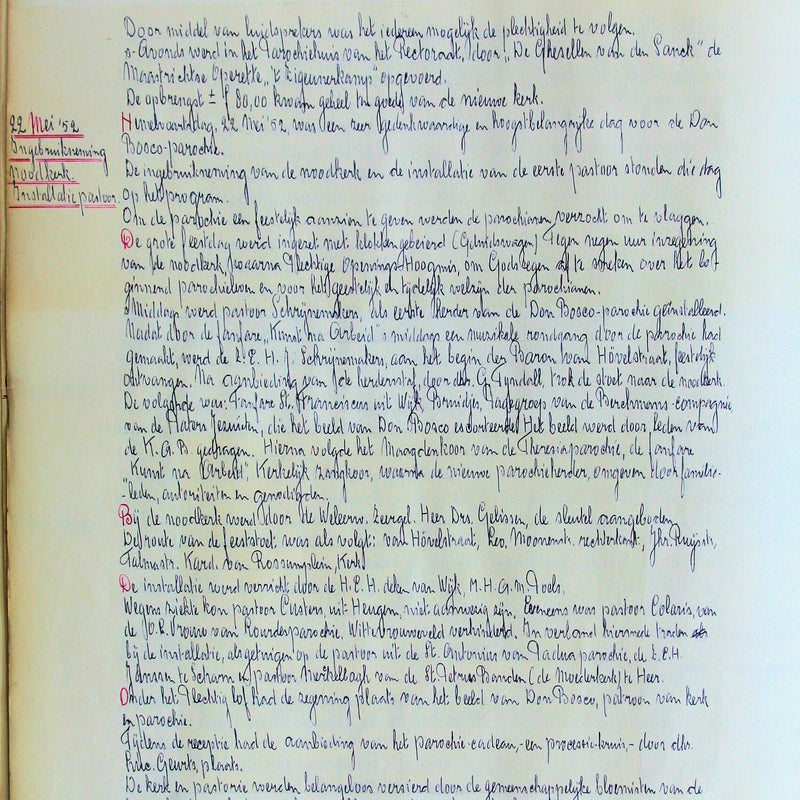 Door middel van luidsprekers was het iedereen mogelijk de plechtigheid te volgen.
's-Avonds werd in het Parochiehuis van het Rectoraat, door "De Ghesellen van den Sanck" de
Maastrichtse Operette, "'t Zigeunerkamp" opgevoerd.
De opbrengst ± f 80,00 kwam geheel ten goede van de nieuwe kerk.
22 Mei '52
Ingebruikneming
noodkerk.
Installatie pastoor.
Hemelvaartsdag, 22 Mei '52, was een zeer gedenkwaardige en hoogstbelangrijke dag voor de Don
Bosco-parochie.
De ingebruikneming van de noodkerk en de installatie van de eerste pastoor stonden die dag
op het program.
Om de parochie een feestelijk aanzien te geven werden de parochianen verzocht om te vlaggen.
De grote feestdag werd ingezet met klokkengebeierd (Geluidswagen) Tegen negen uur inzegening
van de noodkerk, waarna Plechtige Openings-Hoogmis, om Gods zegen af te smeken over het be-
ginnend parochieleven en voor het geestelijk en tijdelijk welzijn der parochianen.
's Middags werd pastoor Schrijnemakers, als eerste herder van de Don Bosco-parochie geïnstalleerd.
Nadat door de fanfare "Kunst na Arbeid" 's middags een muzikale rondgang door de parochie had
gemaakt, werd de Z.E.H. J. Schrijnemakers, aan het begin der Baron van Hövelstraat, feestelijk
ontvangen. Na aanbieding van de herdersstaf, door dhr. G. Tyndall, trok de stoet naar de noodkerk.
De volgorde was: Fanfare St. Franciscus uit Wijk, Bruidjes, Pagegroep van de Berchmans-compagnie
van de Paters Jezuieten, die het beeld van Don Bosco escorteerde. Het beeld werd door leden van
de K.A.B. gedragen. Hierna volgde het Maagdenkoor van de Theresiaparochie, de fanfare
"Kunst na Arbeid", Kerkelijk zangkoor, waarna de nieuwe parochieherder, omgeven door familie-
leden, autoriteiten en genodigden.
Bij de noodkerk werd door de Weleerw. Zeergel. Heer Drs. Gelissen, de sleutel aangeboden.
De route van de feeststoet was als volgt: van Hövelstraat, Reo, Moonenstr. rechterkant, Jhr. Ruijsstr,
Talmastr. Kard. van Rossumplein, Kerk)
De installatie werd verricht door de H.E.H. deken van Wijk, M.H.A.M.
Wegens ziekte kon pastoor Custers, uit Heugem, niet aanwezig zijn, Eveneens was pastoor Colaris, van
de O.L. Vrouw van Lourdesparochie, Wittevrouweveld verhinderd. In verband hiermede traden
bij de installatie, als getuigen op de pastoor uit de St. Antonius van Padua parochie, de Z.E.H.
Janssen te Scharn en pastoor van de St. Petrus Banden (de Moederkerk) te Heer.
Onder het Plechtig lof had de zegening plaats van het beeld van Don Bosco, patroon van kerk
en parochie.
Tijdens de receptie had de aanbieding van het parochie-cadeau,-een processie-kruis,- door dhr.
Geurts, plaats.
De kerk en pastorie werden belangeloos versierd door de gemeenschappelijke bloemisten van de